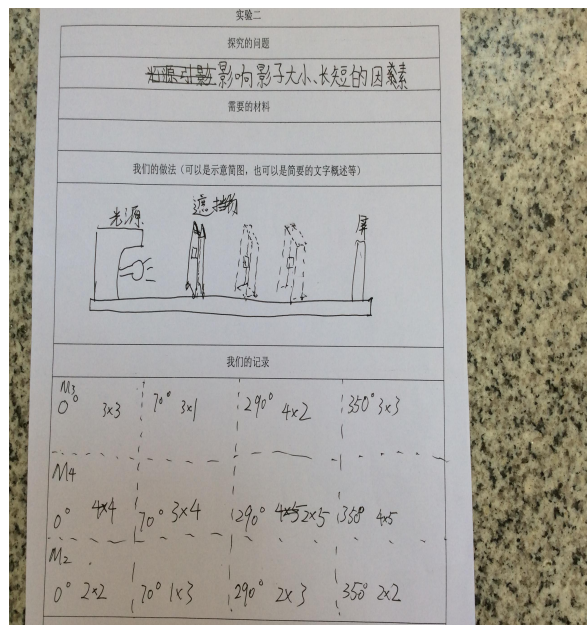 实验二
探究的问题
影响影子大小、长短的因素
需要的材料
我们的做法（可以是示意简图，也可以是简要的文字概述等）
光源 遮挡物 屏
我们的记录
M3
0° 3x3 70° 3x1 290° 4x2 350° 3x3
M4
0° 4x4 70° 3x4 290° 2x5 350° 4x5
M2
0° 2x2 70° 1x3 290° 2x3 350° 2x2